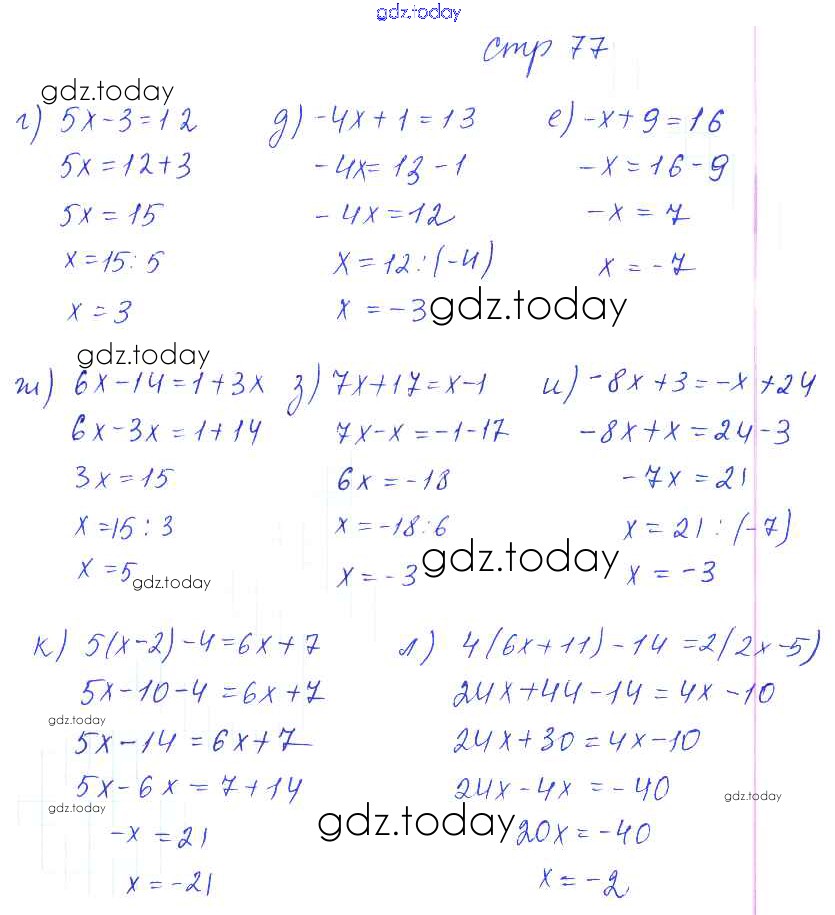 gdz.today
стр 77
gdz.today
г) 5x-3=12
5x=12+3
5x=15
x=15:5
x=3
д) -4x+1=13
-4x=13-1
-4x=12
x=12:(-4)
x=-3
gdz.today
е) -x+9=16
-x=16-9
-x=7
x=-7
gdz.today
ж) 6x-14=1+3x
6x-3x=1+14
3x=15
x=15:3
x=5
gdz.today
з) 7x+17=x-1
7x-x=-1-17
6x=-18
x=-18:6
x=-3
gdz.today
и) -8x+3=-x+24
-8x+x=24-3
-7x=21
x=21:(-7)
x=-3
к) 5(x-2)-4=6x+7
5x-10-4=6x+7
gdz.today
5x-14=6x+7
5x-6x=7+14
gdz.today
-x=21
x=-21
gdz.today
л) 4(6x+11)-14=2(2x-5)
24x+44-14=4x-10
24x+30=4x-10
24x-4x=-40
gdz.today
20x=-40
x=-2